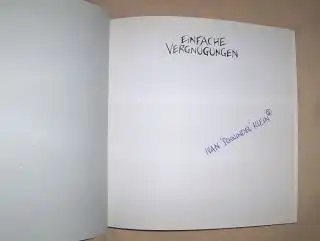 EINFACHE
VERGNÜGUNGEN
IVAN
KLEIN